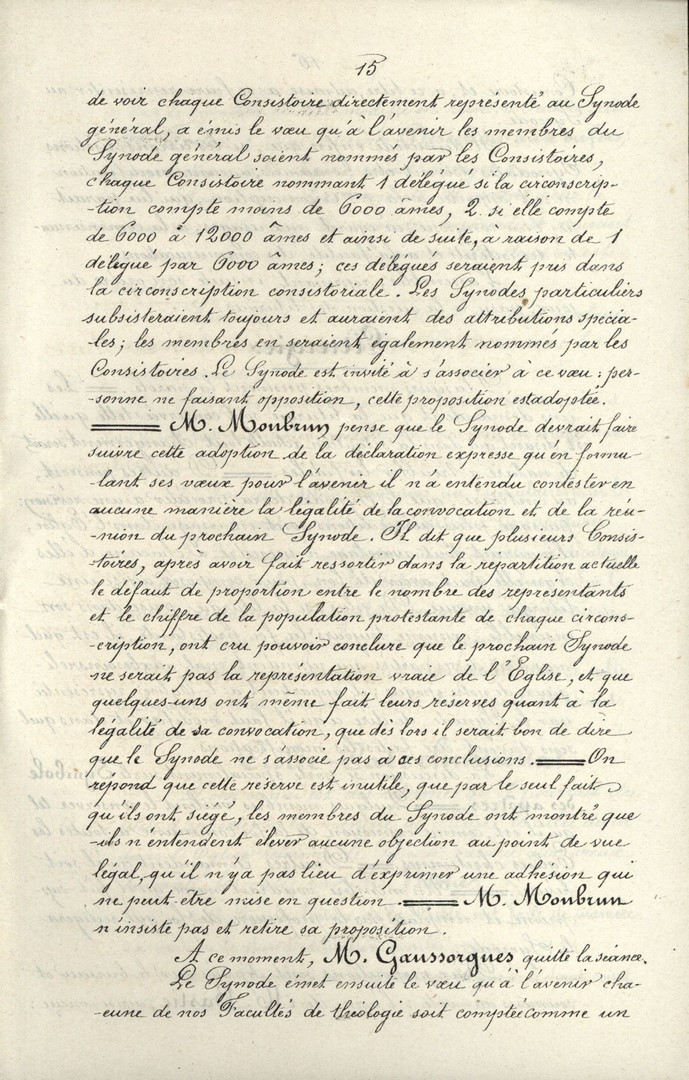 15
de voir chaque Consistoire directement représenté au Synode
général, a émis le vœu qu'à l'avenir les membres du
Synode général soient nommés par les Consistoires,
chaque Consistoire nommant 1 délégué si la circonscrip-
-tion compte moins de 6000 âmes, 2 si elle compte
de 6000 à 12000 âmes et ainsi de suite, à raison de 1
délégué par 6000 âmes; ces délégués seraient pris dans
la circonscription consistoriale. Les Synodes particuliers
subsisteraient toujours et auraient des attributions spécia-
-les; les membres en seraient également nommés par les
Consistoires. Le Synode est invité à s'associer à ce vœu: per-
-sonne ne faisant opposition, cette proposition est adoptée.
M. Moubrun pense que le Synode devrait faire
suivre cette adoption de la déclaration expresse qu'en formu-
-lant ses vœux pour l'avenir il n'a entendu contester en
aucune manière la légalité de la convocation et de la réu-
-nion du prochain Synode. Il dit que plusieurs Consis-
-toires, après avoir fait ressortir dans la répartition actuelle
le défaut de proportion entre le nombre des représentants
et le chiffre de la population protestante de chaque circons-
-cription, ont cru pouvoir conclure que le prochain Synode
ne serait pas la représentation vraie de l'Eglise, et que
quelques-uns ont même fait leurs réserves quant à la
légalité de sa convocation, que dès lors il serait bon de dire
que le Synode ne s'associe pas à ces conclusions. On
répond que cette réserve est inutile, que par le seul fait
qu'ils ont siégé, les membres du Synode ont montré que
-ils n'entendent élever aucune objection au point de vue
légal, qu'il n'y a pas lieu d'exprimer une adhésion qui
ne peut être mise en question. M. Moubrun
n'insiste pas et retire sa proposition.
A ce moment, M. Gaussorgues quitte la séance.
Le Synode émet ensuite le vœu qu'à l'avenir cha-
-cune de nos Facultés de théologie soit comptée comme un